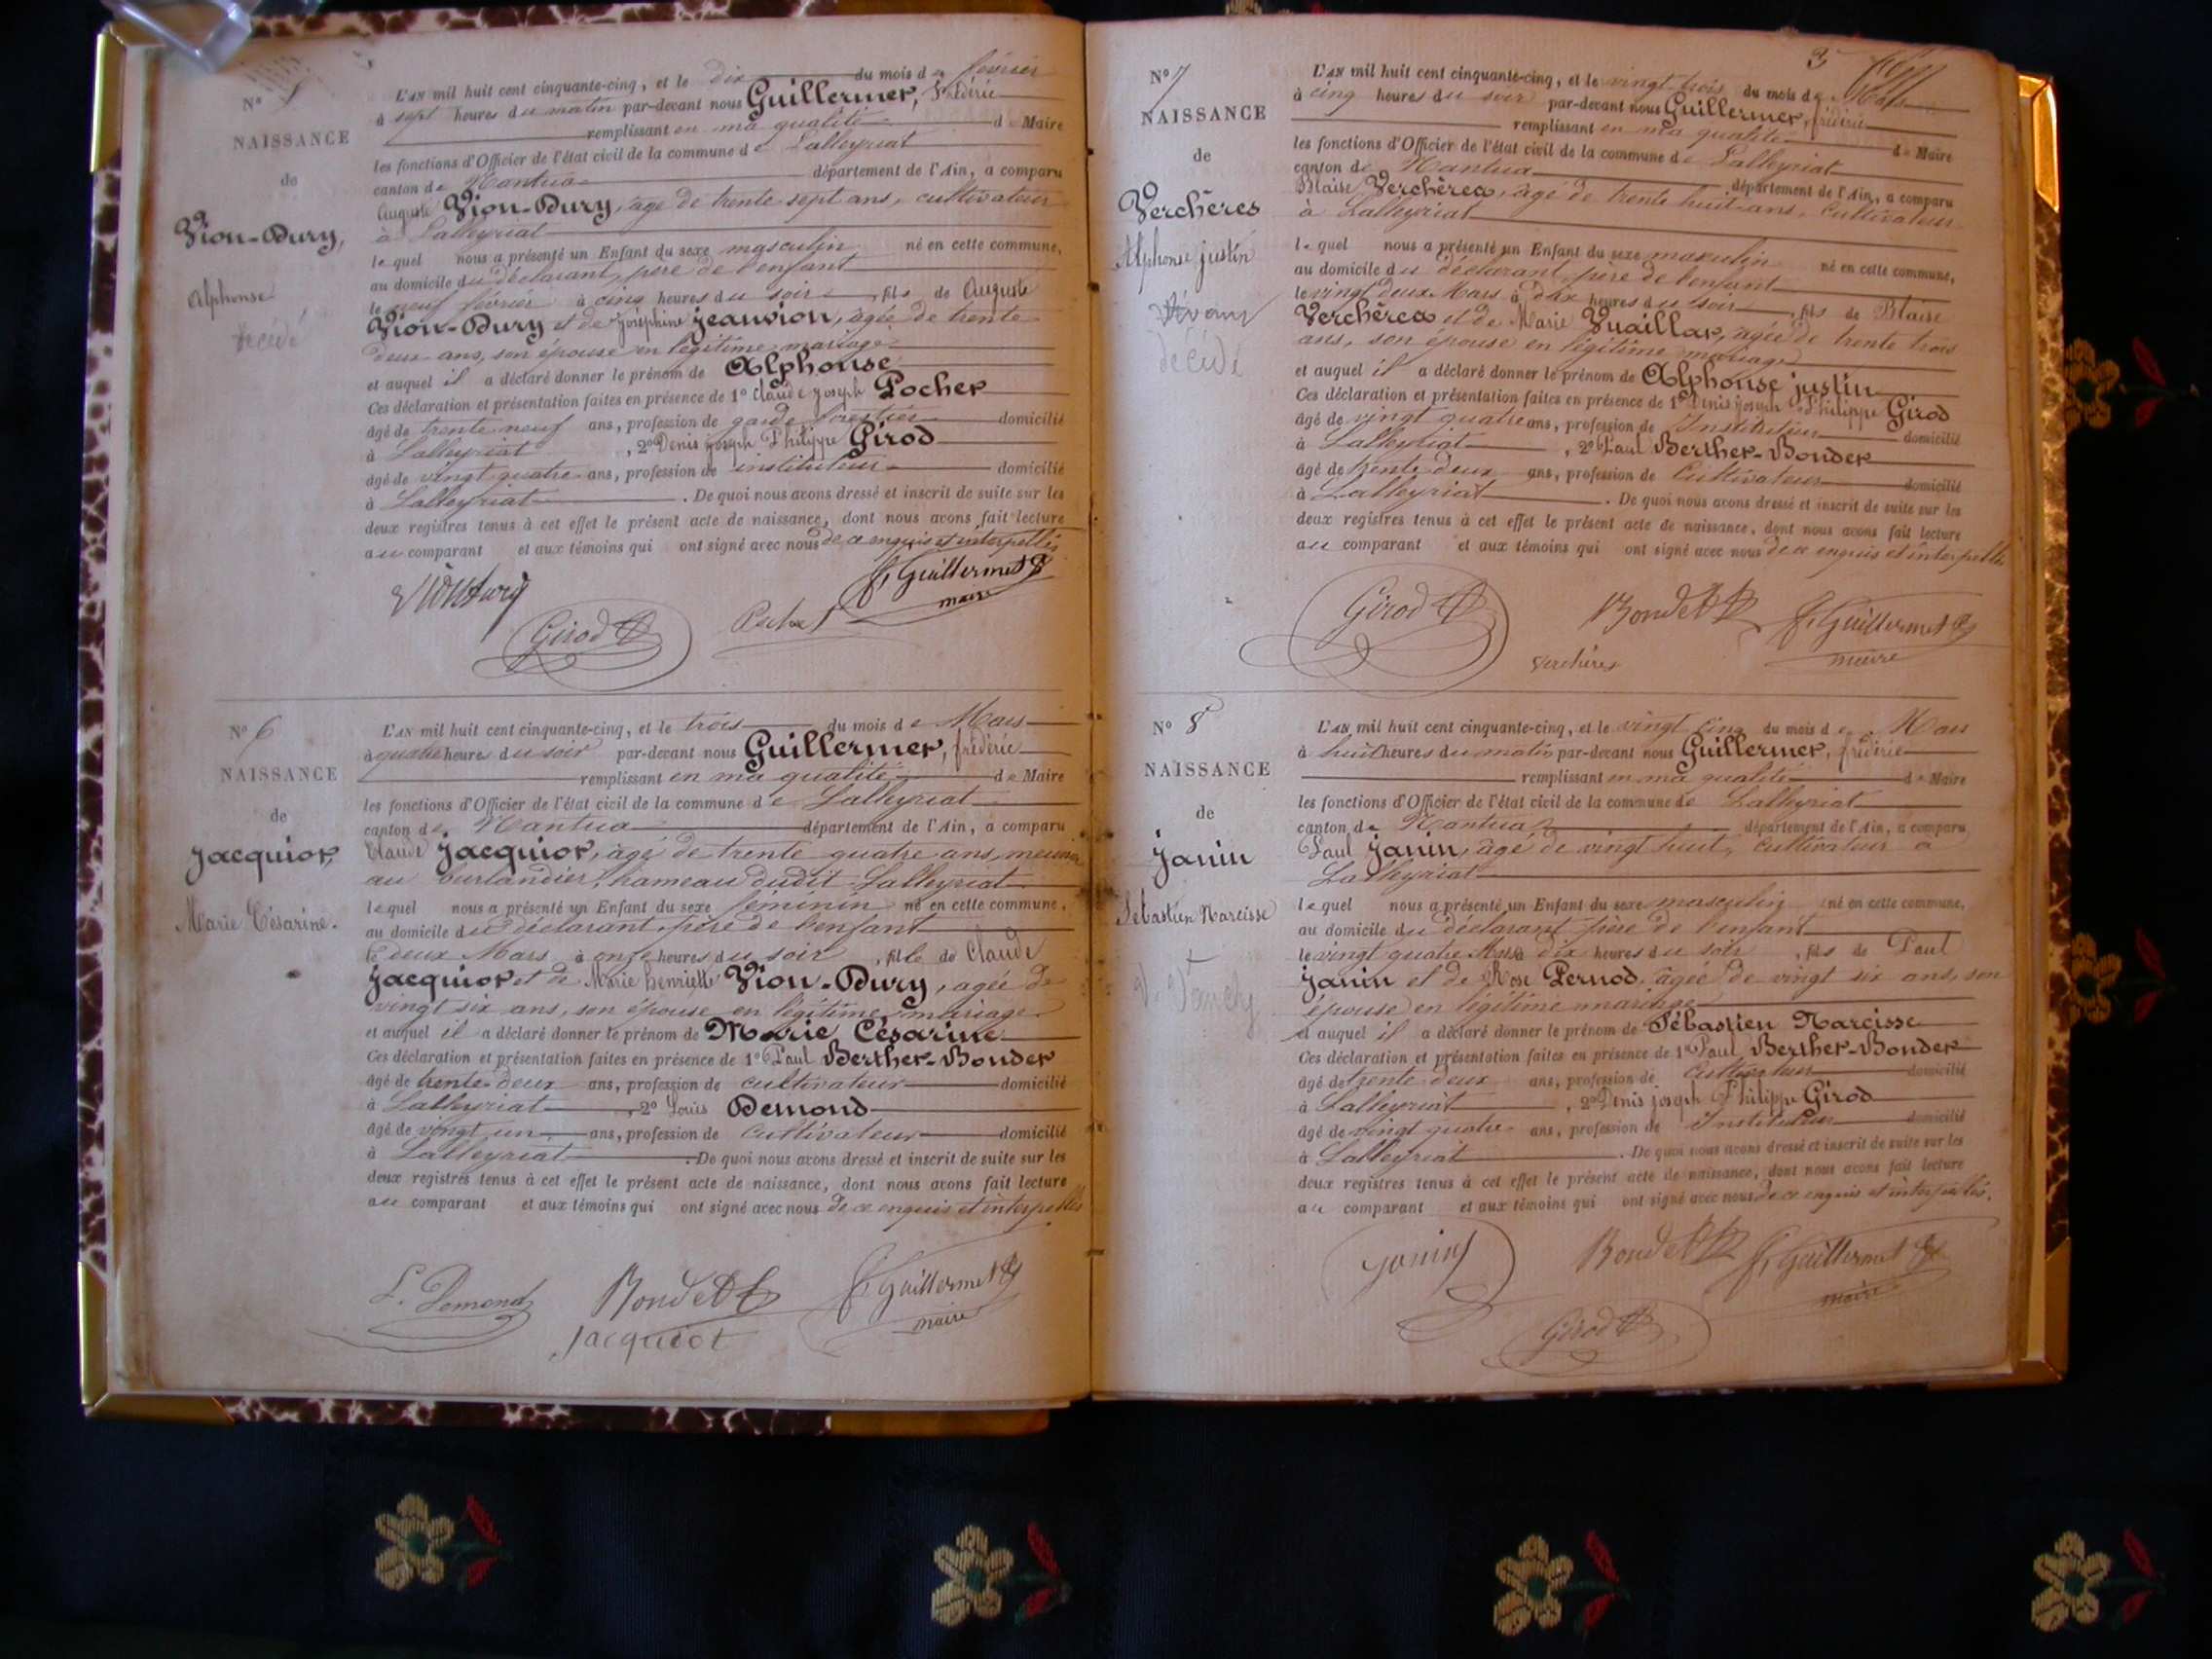 N° 5
NAISSANCE
de
Vion-Dury,
Alphonse
décédé
L'AN mil huit cent cinquante-cinq, et le dix du mois de février
à sept heures du matin par-devant nous Guillermet, frédéric
remplissant en ma qualité de Maire
les fonctions d'Officier de l'état civil de la commune de Lalleyriat
canton de Nantua département de l'Ain, a comparu
Auguste Vion-Dury, âgé de trente sept ans, cultivateur
à Lalleyriat
lequel nous a présenté un Enfant du sexe masculin né en cette commune,
au domicile du déclarant, père de l'enfant
le neuf février à cinq heures du soir, fils de Auguste
Vion-Dury et de Joséphine Jeanvion, âgée de trente
deux ans, son épouse en légitime mariage
et auquel il a déclaré donner le prénom de Alphonse
Ces déclaration et présentation faites en présence de 1° Claude Joseph Pochet
âgé de trente neuf ans, profession de garde forestier domicilié
à Lalleyriat, 2° Denis joseph Philippe Girod
âgé de vingt quatre ans, profession de instituteur domicilié
à Lalleyriat. De quoi nous avons dressé et inscrit de suite sur les
deux registres tenus à cet effet le présent acte de naissance, dont nous avons fait lecture
au comparant et aux témoins qui ont signé avec nous de ce enquis et interpellés
Viondury
f. Guillermet
maire
Girod
Pochet
N° 6
NAISSANCE
de
Jacquiot,
Marie Césarine.
L'AN mil huit cent cinquante-cinq, et le trois du mois de Mars
à quatre heures du soir par-devant nous Guillermet, frédéric
remplissant en ma qualité de Maire
les fonctions d'Officier de l'état civil de la commune de Lalleyriat
canton de Nantua département de l'Ain, a comparu
Claude Jacquiot, âgé de trente quatre ans, meunier
au burlandier, hameau dudit Lalleyriat
lequel nous a présenté un Enfant du sexe féminin né en cette commune,
au domicile du déclarant, père de l'enfant
le deux Mars à onze heures du soir, fille de Claude
Jacquiot et de Marie henriette Vion-Dury, agée de
vingt six ans, son épouse en légitime mariage
et auquel il a déclaré donner le prénom de Marie Césarine
Ces déclaration et présentation faites en présence de 1° Paul Berthet-Bondet
âgé de trente deux ans, profession de cultivateur domicilié
à Lalleyriat, 2° Louis Demond
âgé de vingt un ans, profession de cultivateur domicilié
à Lalleyriat. De quoi nous avons dressé et inscrit de suite sur les
deux registres tenus à cet effet le présent acte de naissance, dont nous avons fait lecture
au comparant et aux témoins qui ont signé avec nous de ce enquis et interpellés
L. Demond
Bondet
f. Guillermet
maire
Jacquiot
3
N° 7
NAISSANCE
de
Verchères
Alphonse justin
décédé
L'AN mil huit cent cinquante-cinq, et le vingt trois du mois de Mars
à cinq heures du soir par-devant nous Guillermet, frédéric
remplissant en ma qualité de Maire
les fonctions d'Officier de l'état civil de la commune de Lalleyriat
canton de Nantua département de l'Ain, a comparu
Blaise Verchères, âgé de trente huit ans, Cultivateur
à Lalleyriat
lequel nous a présenté un Enfant du sexe masculin né en cette commune,
au domicile du déclarant, père de l'enfant
le vingt deux Mars à dix heures du soir, fils de Blaise
Verchères et de Marie Vuaillat, agée de trente trois
ans, son épouse en légitime mariage
et auquel il a déclaré donner le prénom de Alphonse justin
Ces déclaration et présentation faites en présence de 1° Denis joseph Philippe Girod
âgé de vingt quatre ans, profession de Instituteur domicilié
à Lalleyriat, 2° Paul Berthet-Bondet
âgé de trente deux ans, profession de Cultivateur domicilié
à Lalleyriat. De quoi nous avons dressé et inscrit de suite sur les
deux registres tenus à cet effet le présent acte de naissance, dont nous avons fait lecture
au comparant et aux témoins qui ont signé avec nous de ce enquis et interpellés
Girod
Bondet
f. Guillermet
maire
verchères
N° 8
NAISSANCE
de
Janin
Sébastien Narcisse
L'AN mil huit cent cinquante-cinq, et le vingt cinq du mois de Mars
à huit heures du matin par-devant nous Guillermet, frédéric
remplissant en ma qualité de Maire
les fonctions d'Officier de l'état civil de la commune de Lalleyriat
canton de Nantua département de l'Ain, a comparu
Paul Janin, âgé de vingt huit, cultivateur à
Lalleyriat
lequel nous a présenté un Enfant du sexe masculin né en cette commune,
au domicile du déclarant, père de l'enfant
le vingt quatre Mars à dix heures du soir, fils de Paul
Janin et de Rose Pernod, agée de vingt six ans, son
épouse en légitime mariage
et auquel il a déclaré donner le prénom de Sébastien Narcisse
Ces déclaration et présentation faites en présence de 1° Paul Berthet-Bondet
âgé de trente deux ans, profession de Cultivateur domicilié
à Lalleyriat, 2° Denis joseph Philippe Girod
âgé de vingt quatre ans, profession de Instituteur domicilié
à Lalleyriat. De quoi nous avons dressé et inscrit de suite sur les
deux registres tenus à cet effet le présent acte de naissance, dont nous avons fait lecture
au comparant et aux témoins qui ont signé avec nous de ce enquis et interpellés.
Janin
Bondet
f. Guillermet
maire
Girod